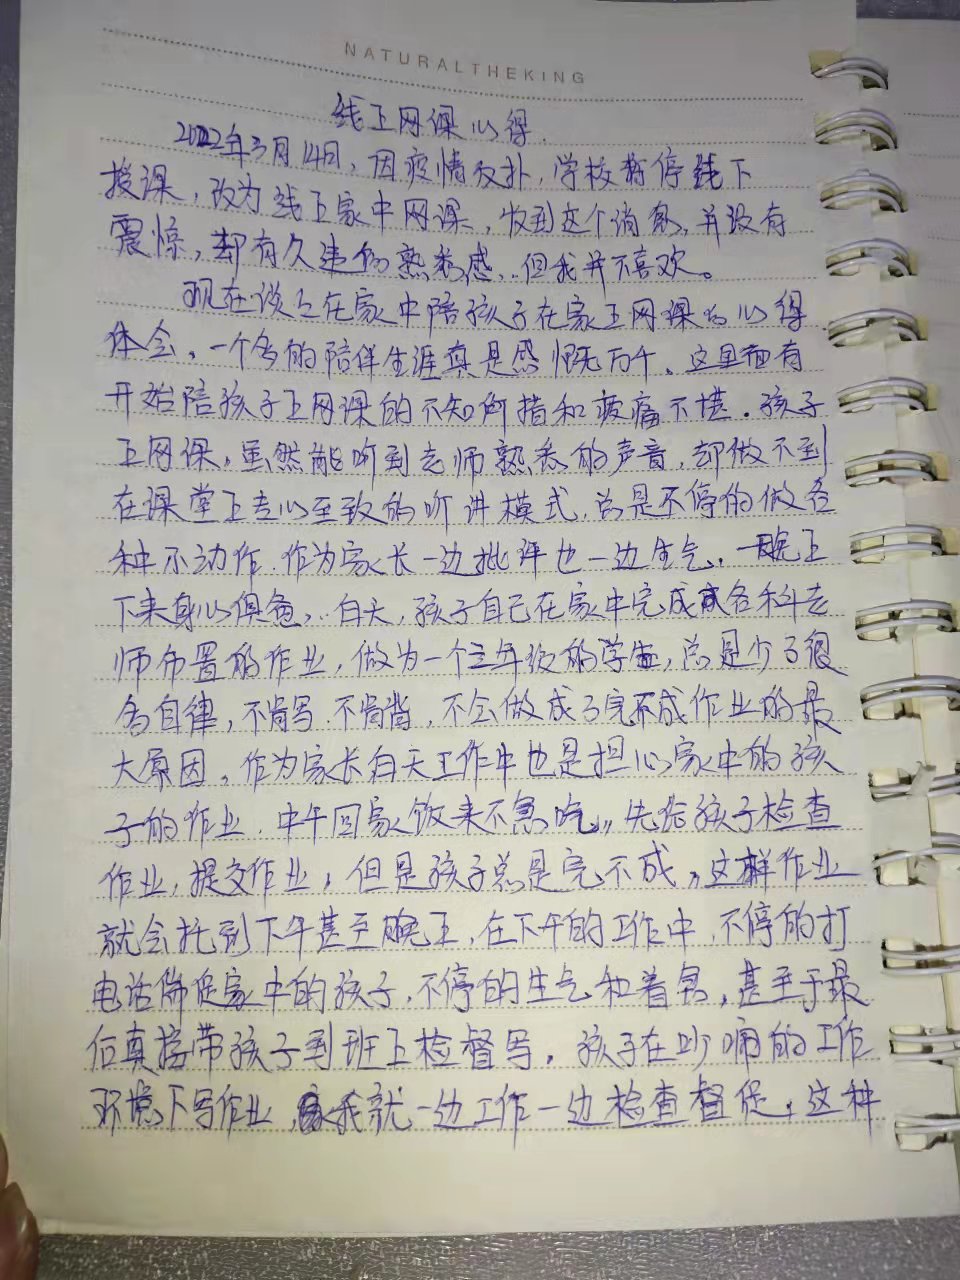 NATURALTHEKING
线上网课心得.
2022年3月14日,因疫情反扑,学校暂停线下
授课,改为线上家中网课,收到这个消息,并没有
震惊,却有久违的熟悉感,但我并不喜欢。
现在谈之在家中陪孩子在家上网课的心得
体会。一个多的陪伴生涯真是感慨万千。这里面有
开始陪孩子上网课的不知所措和疲惫不堪.孩子
上网课,虽然能听到老师熟悉的声音,却做不到
在课堂上专心至致的听讲模式,总是不停的做各
种小动作.作为家长一边批评也一边生气.一晚上
下来身心俱惫,白天,孩子自己在家中完成各科老
师布置的作业,做为一个三年级的学生,总是少了很
多自律,不肯写.不肯背,不会做成了完不成作业的最
大原因。作为家长白天工作中也是担心家中的孩
子的作业.中午回家饭来不急吃,先给孩子检查
作业,提交作业,但是孩子总是完不成,这样作业
就会托到下午甚至晚上,在下午的工作中,不停的打
电话催促家中的孩子,不停的生气和着急,甚至于最
后真接带孩子到班上检督写.孩子在吵闹的工作
环境下写作业,我就一边工作一边检查督促,这种